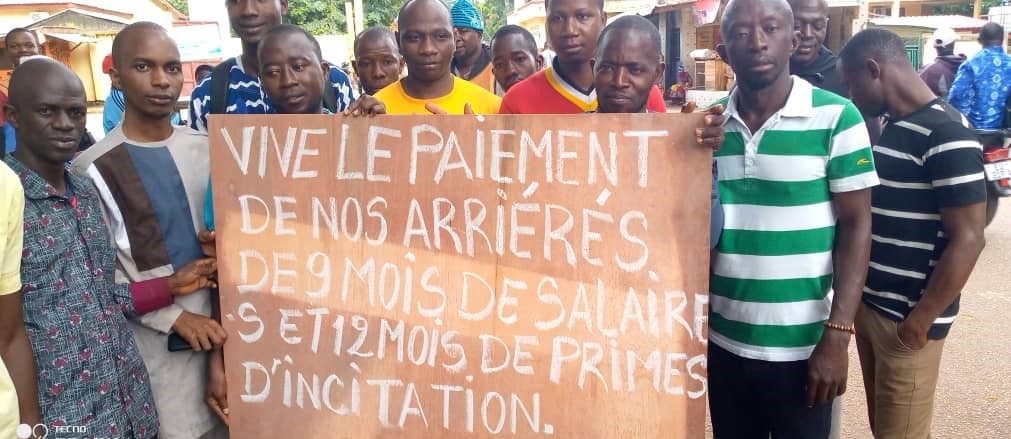 VIVE LE PAIEMENT
DE NOS ARRIÉRÉS.
DE 9 MOIS DE SALAIRE
-S ET 12 MOIS DE PRIMES
D'INCITATION.
TECNO